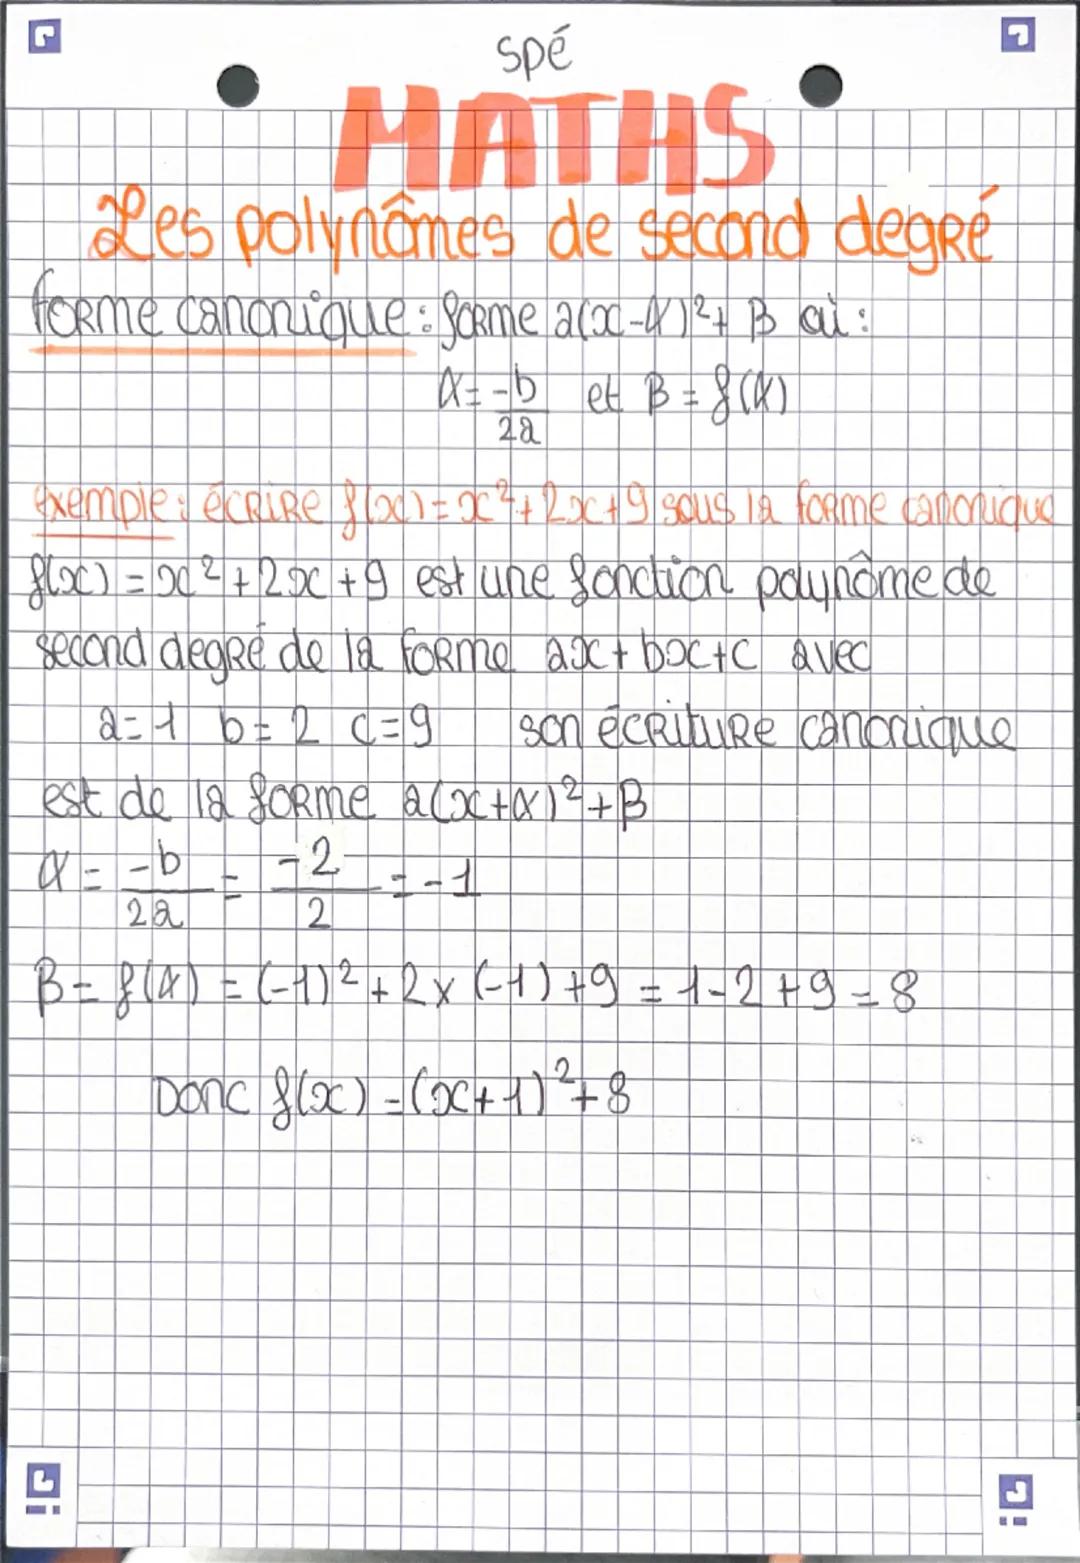 spé
MATHS
Les polynômes de second degré
forme canonique : forme a(x-α)²+ β où :
α = -b/2a et β = f(α)
exemple : écrire f(x) = x²+2x+9 sous la forme canonique
f(x) = x²+2x+9 est une fonction polynôme de
second degré de la forme ax+bx+c avec
a=1 b=2 c=9 son écriture canonique
est de la forme a(x+α)²+β
α = -b/2a = -2/2 = -1
β = f(α) = (-1)²+2x(-1)+9 = 1-2+9 = 8
Donc f(x) = (x+1)²+8